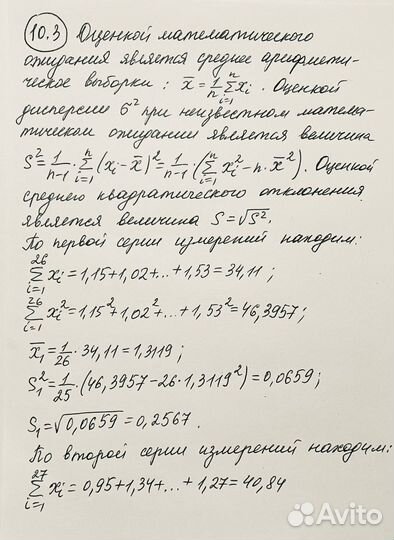 10.3 Оценкой математического
ожидания является среднее арифмети-
ческое выборки: x̄ = 1/n ∑_{i=1}^{n} xᵢ. Оценкой
дисперсии σ² при неизвестном матема-
тическом ожидании является величина
S² = 1/(n-1) · ∑_{i=1}^{n} (xᵢ - x̄)² = 1/(n-1) · (∑_{i=1}^{n} xᵢ² - n · x̄²). Оценкой
среднего квадратического отклонения
является величина S = √S².
По первой серии измерений находим:
∑_{i=1}^{26} xᵢ = 1,15 + 1,02 + ... + 1,53 = 34,11;
∑_{i=1}^{26} xᵢ² = 1,15² + 1,02² + ... + 1,53² = 46,3957;
x̄₁ = 1/26 · 34,11 = 1,3119;
S₁² = 1/25 · (46,3957 - 26 · 1,3119²) = 0,0659;
S₁ = √0,0659 = 0,2567.
По второй серии измерений находим:
∑_{i=1}^{27} xᵢ = 0,95 + 1,34 + ... + 1,27 = 40,84
Avito